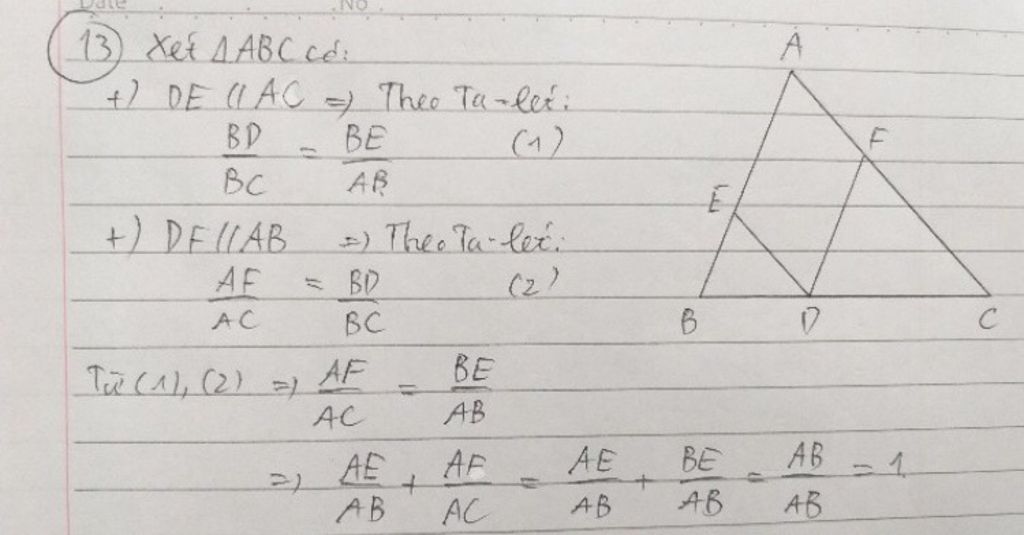 Date No
13 Xét ΔABC có:
+) DE // AC => Theo Ta-lét:
BD/BC = BE/AB (1)
+) DF // AB => Theo Ta-lét:
AF/AC = BD/BC (2)
Từ (1), (2) => AF/AC = BE/AB
=> AE/AB + AF/AC = AE/AB + BE/AB = AB/AB = 1
A
F
E
B D C